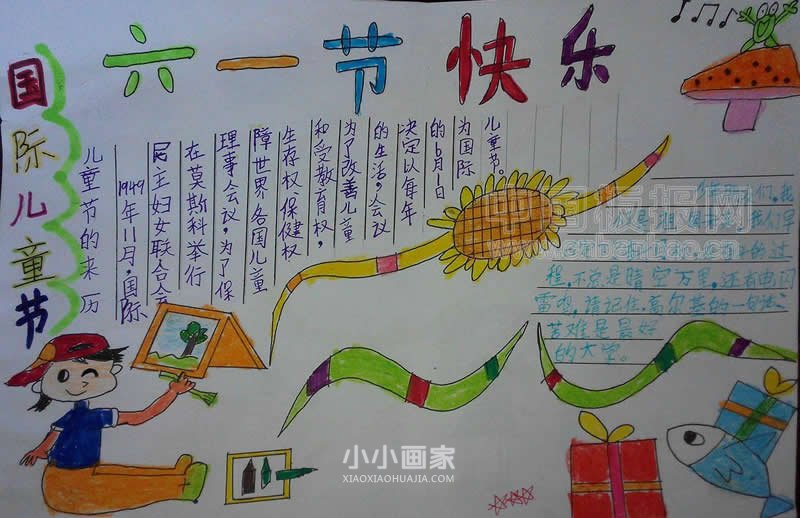 六一节快乐
国际儿童节
儿童节的来历
1949年11月,国际
民主妇女联合会
在莫斯科举行
理事会议,为了保
障世界各国儿童
生存权、保健权
和受教育权,
为了改善儿童
的生活,会议
决定以每年
的6月1日
为国际
儿童节。
中国板报网
们,我
的过
程,不总是晴空万里,还有电闪
雷鸣,请记住,高尔基的一句话:
苦难是最好
的大学。
小小画家
XIAOXIAOHUAJIA.COM